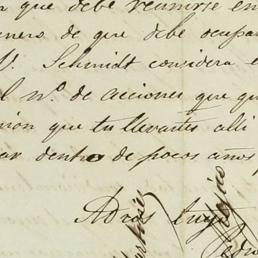 que debe reunirse en
de que debe ocupar
Sr. Schmidt considera e
l nº. de acciones que qu
que tu llevantes alli
ar dentro de pocos años
Adios tuyo